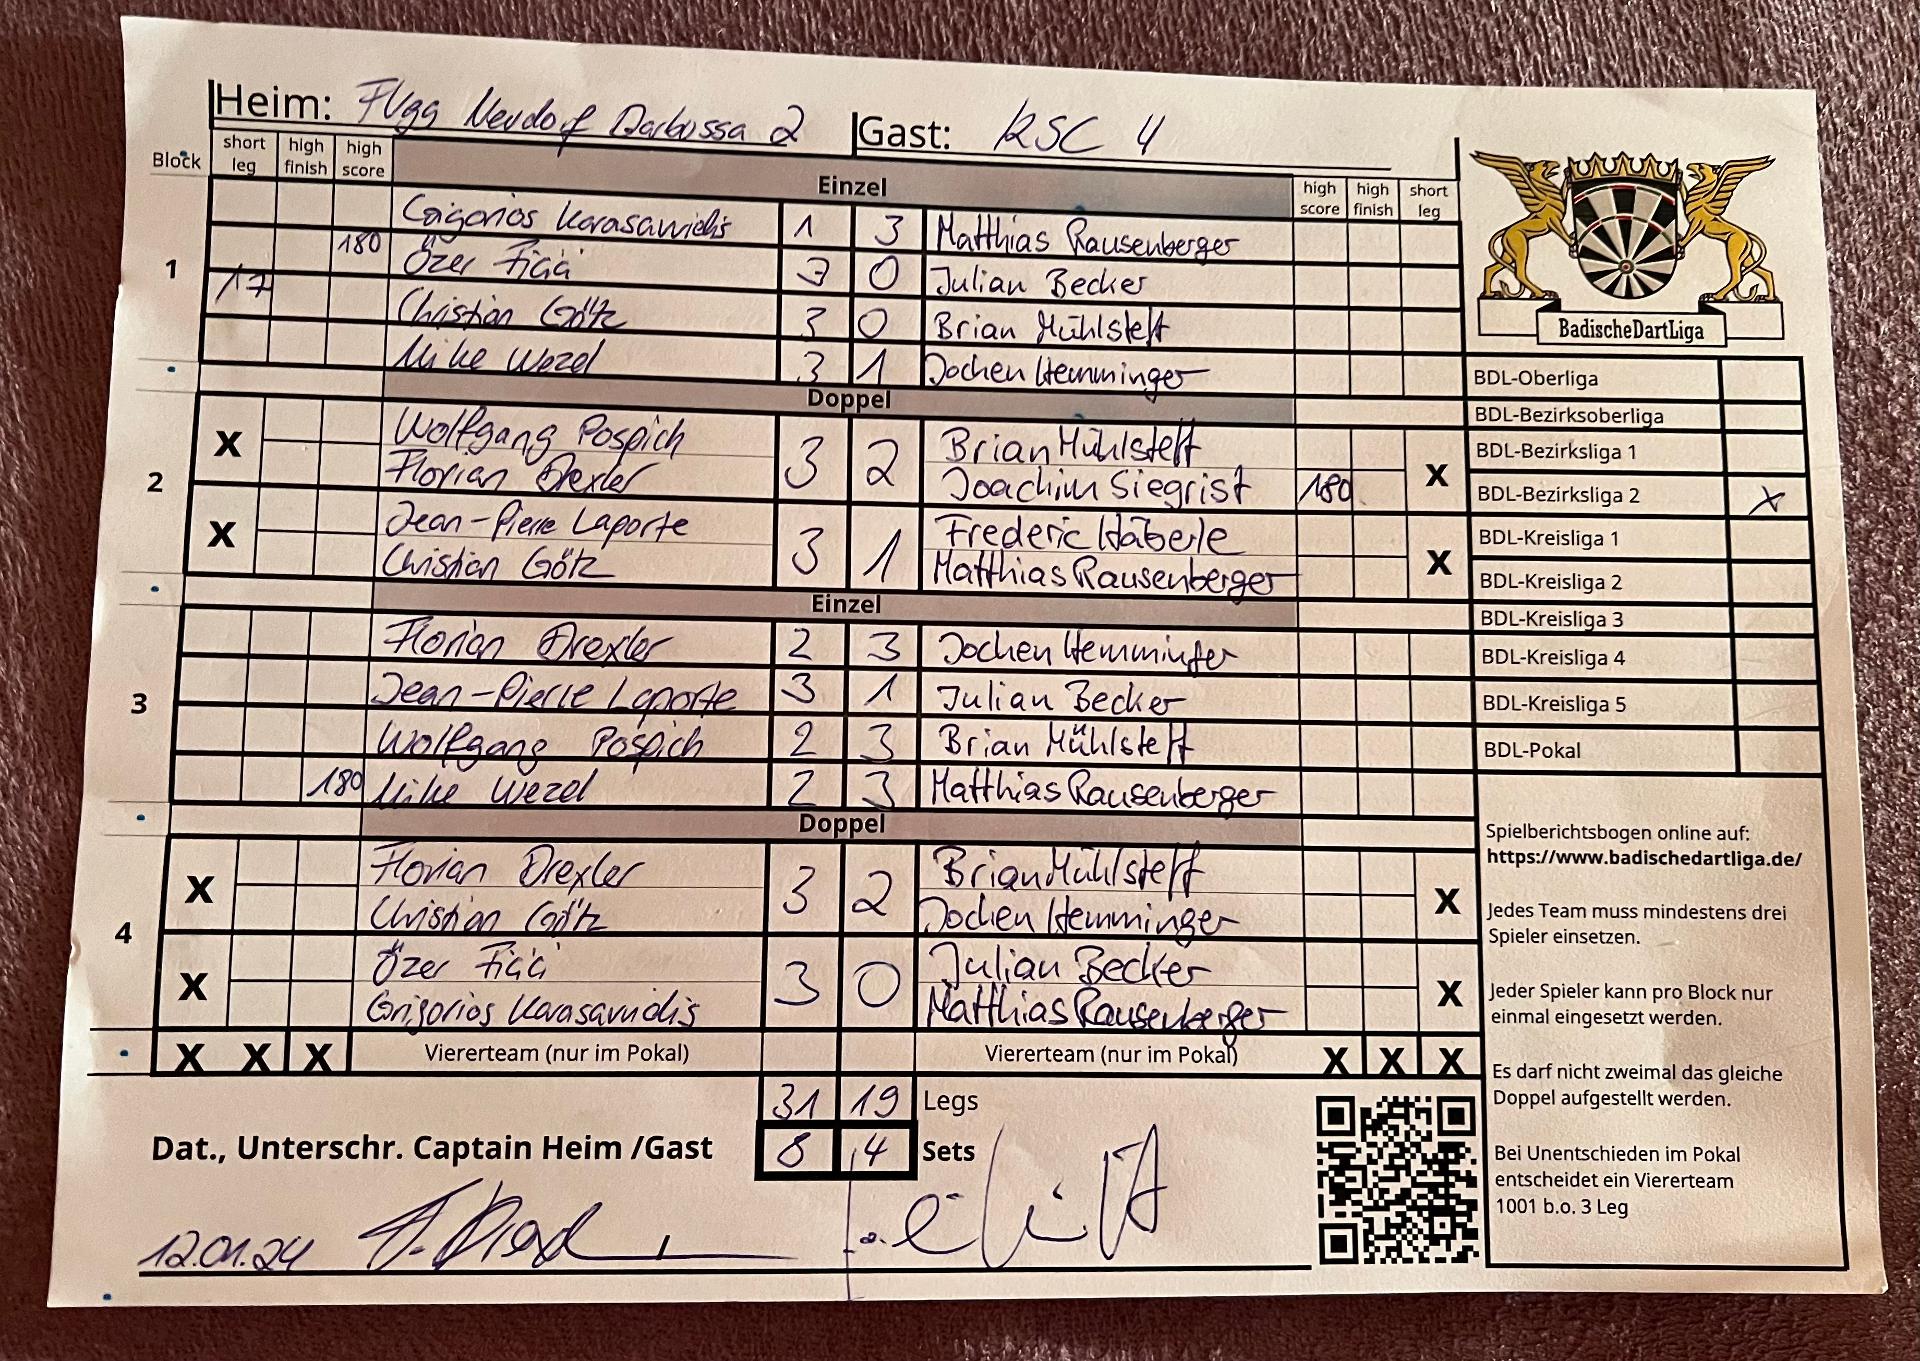 Heim: FVgg Neudorf Barbossa 2 Gast: KSC 4
Block short leg high finish high score Einzel high score high finish short leg
Grigorios Karasavvidis 1 3 Matthias Rausenberger
1 180 Özer Ficici 3 0 Julian Becker
17 Christian Götz 3 0 Brian Mühlsteff
Mike Wezel 3 1 Jochen Hemminger
Doppel
X Wolfgang Pospich 3 2 Brian Mühlsteff X
2 Florian Drexler Joachim Siegrist 180
X Jean-Pierre Laporte 3 1 Frederic Häberle X
Christian Götz Matthias Rausenberger
Einzel
Florian Drexler 2 3 Jochen Hemminger
3 Jean-Pierre Laporte 3 1 Julian Becker
Wolfgang Pospich 2 3 Brian Mühlsteff
180 Mike Wezel 2 3 Matthias Rausenberger
Doppel
X Florian Drexler 3 2 Brian Mühlsteff X
4 Christian Götz Jochen Hemminger
X Özer Ficici 3 0 Julian Becker X
Grigorios Karasavvidis Matthias Rausenberger
X X X Viererteam (nur im Pokal) Viererteam (nur im Pokal) X X X
31 19 Legs
Dat., Unterschr. Captain Heim /Gast 8 4 Sets
12.01.24
BadischeDartLiga
BDL-Oberliga
BDL-Bezirksoberliga
BDL-Bezirksliga 1
BDL-Bezirksliga 2 X
BDL-Kreisliga 1
BDL-Kreisliga 2
BDL-Kreisliga 3
BDL-Kreisliga 4
BDL-Kreisliga 5
BDL-Pokal
Spielberichtsbogen online auf:
https://www.badischedartliga.de/
Jedes Team muss mindestens drei
Spieler einsetzen.
Jeder Spieler kann pro Block nur
einmal eingesetzt werden.
Es darf nicht zweimal das gleiche
Doppel aufgestellt werden.
Bei Unentschieden im Pokal
entscheidet ein Viererteam
1001 b.o. 3 Leg